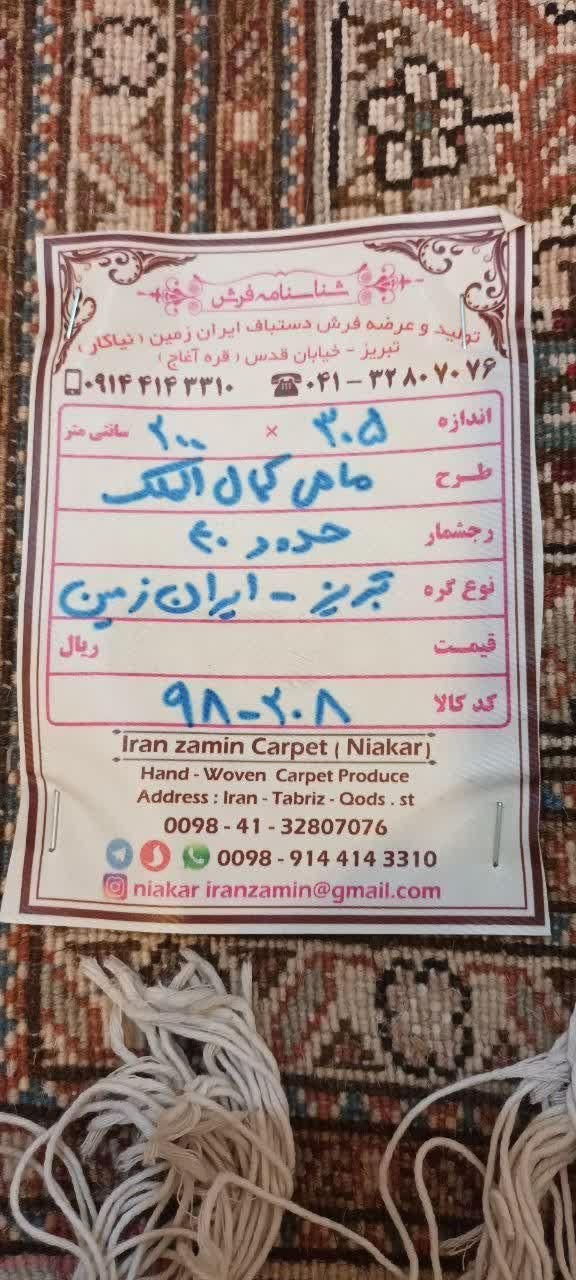 شناسنامه فرش
تولید و عرضه فرش دستباف ایران زمین (نیاکار)
تبریز - خیابان قدس (قره آغاج)
۰۹۱۴ ۴۱۴ ۳۳۱۰ ۰۴۱ – ۳۲ ۸۰ ۷۰ ۷۶
اندازه ۳۰۵ × ۲۰۰ سانتی متر
طرح ماهی کمال الملک
رجشمار حدود ۴۰
نوع گره تبریز - ایران زمین
قیمت ریال
کد کالا ۹۸-۲۰۸
Iran zamin Carpet ( Niakar)
Hand - Woven Carpet Produce
Address : Iran - Tabriz - Qods . st
0098 - 41 - 32807076
0098 - 914 414 3310
niakar iranzamin@gmail.com